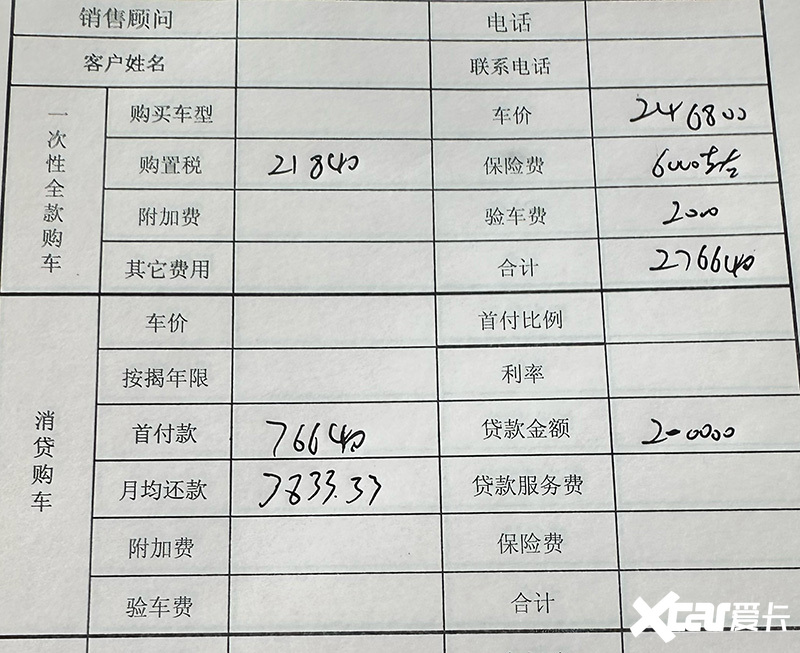 销售顾问 电话
客户姓名 联系电话
一次性全款购车
购买车型 车价 246800
购置税 21840 保险费 6000左右
附加费 验车费 2000
其它费用 合计 276640
消贷购车
车价 首付比例
按揭年限 利率
首付款 76640 贷款金额 200000
月均还款 3833.33 贷款服务费
附加费 保险费
验车费 合计
Xcar爱卡